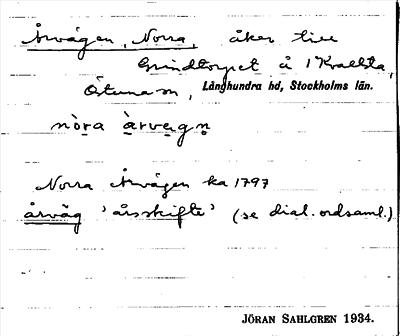 Årvägen, Norra, åker till
Grindtorpet å 1 Kvallsta,
Ötuna sn, Långhundra hd, Stockholms län.
nòra àrvęgn̥
Norra Årvägen ka 1797
årväg 'årsskifte' (se dial. ordsaml.)
JÖRAN SAHLGREN 1934.